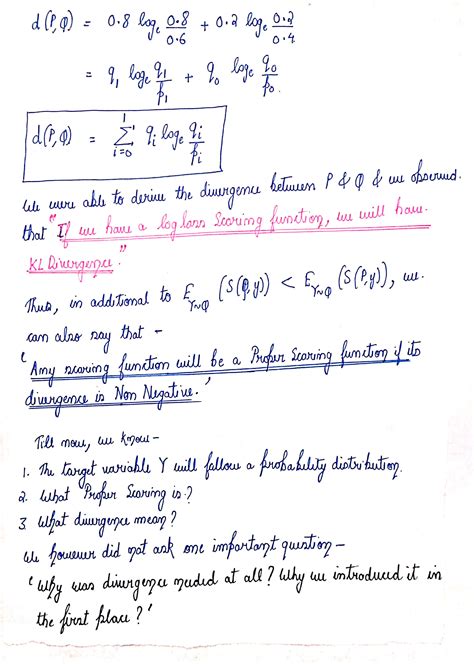 d(P,Q) = 0.8 logₑ 0.8/0.6 + 0.2 logₑ 0.2/0.4
= q₁ logₑ q₁/p₁ + q₀ logₑ q₀/p₀.
d(P,Q) = ∑_{i=0}^{1} qᵢ logₑ qᵢ/pᵢ
We were able to derive the divergence between P & Q & we observed.
that "If we have a log loss Scoring function, we will have.
KL Divergence."
Thus, in additional to E_{Y~Q} (S(Q,y)) < E_{Y~Q} (S(P,y)), we.
can also say that -
'Any scoring function will be a Proper Scoring function if its
divergence is Non Negative.'
Till now, we know -
1. The target variable Y will follow a probability distribution.
2. What Proper Scoring is ?
3. What divergence mean ?
We however did not ask one important question -
'Why was divergence needed at all ? Why we introduced it in
the first place ?'